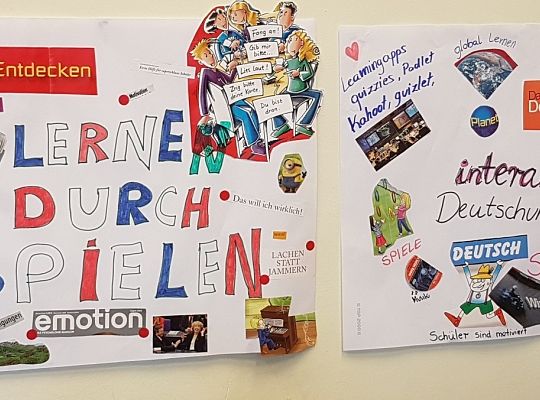 Entdecken
Motivation
LERNEN
DURCH
SPIELEN
Fang an!
Gib mir bitte...
Lies laut!
Zeig bitte deine Karte.
Du bist dran.
Das will ich wirklich!
LACHEN
STATT
JAMMERN
emotion
Learningapps
quizzies, Padlet
Kahoot, quizlet,
global Lernen
Planet
intera
Deutschun
SPIELE
DEUTSCH
Schüler sind motiviert